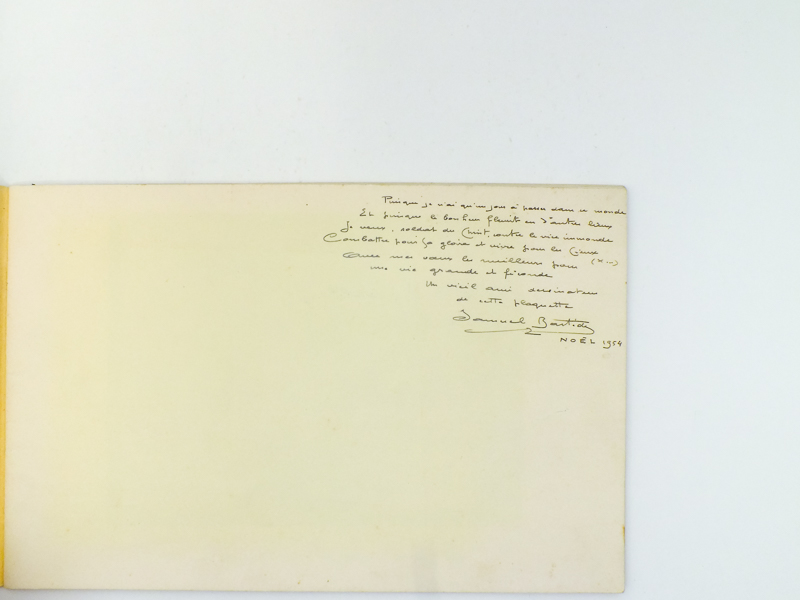 Puisque je n'ai qu'un jour à passer dans ce monde
Et puisque le bonheur fleurit en d'autres lieux
Je veux, soldat du Christ, contre le vice immonde
Combattre pour Sa gloire et vivre pour les Cieux
(x...)
Avec mes vœux les meilleurs pour
une vie grande et féconde
Un vieil ami dessinateur
de cette plaquette
Samuel Bastide
NOËL 1954